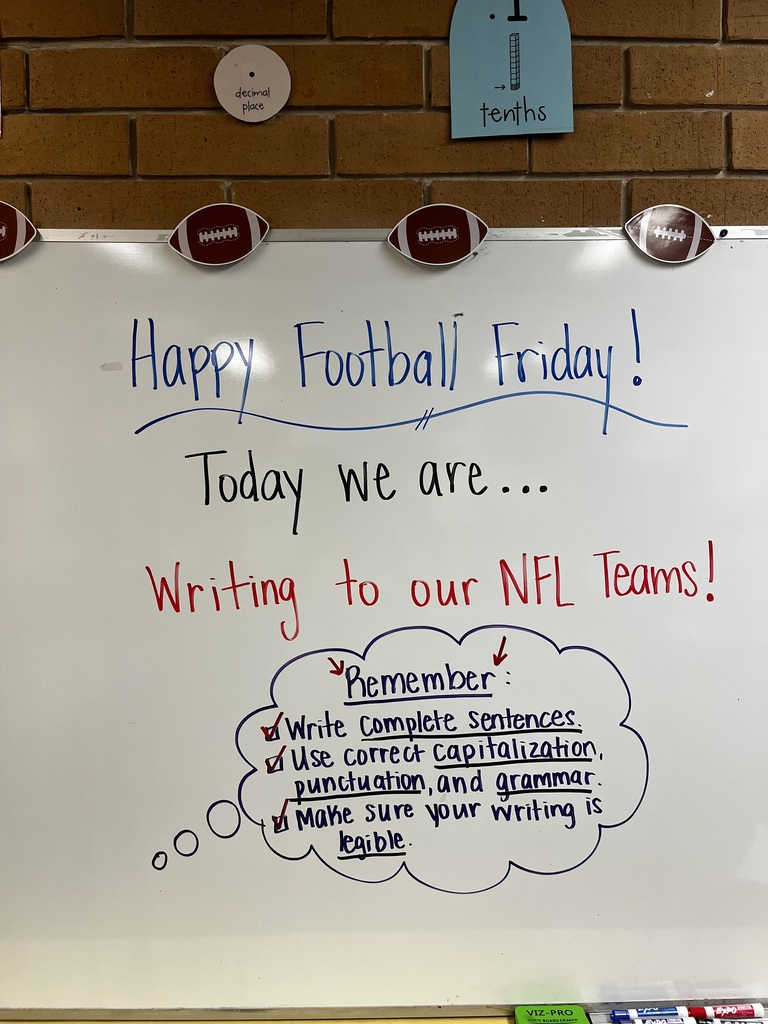 .1
decimal
place
tenths
Happy Football Friday!
Today we are...
Writing to our NFL Teams!
Remember:
Write complete sentences.
Use correct capitalization,
punctuation, and grammar.
Make sure your writing is
legible.
VIZ-PRO
WHITEBOARD ERASER
EXPO
EXPO